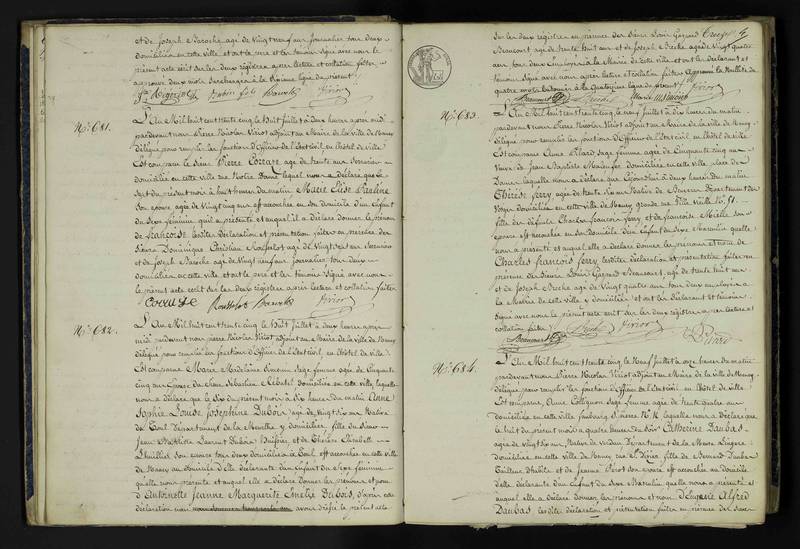 et de Joseph Baroche agé de Vingt neuf ans Journalier tous deux
domiciliés en cette ville et ont le pere et les témoins signé avec nous le
présent acte écrit sur les deux registres après lecture et collation faites
approuvé deux mots
Virior
N.º 681.
L'An Mil huit cent trente cinq le huit Juillet à deux heures après midi
pardevant nous Pierre Nicolas Viriot adjoint au Maire de la ville de Nancy
délégué pour remplir les fonctions d'Officier de l'Etat civil, en l'hôtel de ville
Est comparu le Sieur Pierre agé de trente ans Serrurier
domicilié en cette ville rue Notre Dame lequel nous a déclaré que le
Sept du présent mois à huit heures du matin Marie Elise Pauline
Son epouse agée de Vingt cinq ans est accouchée en son domicile d'un Enfant
du Sexe féminin qu'il a présenté et auquel il a déclaré donner le prénom
de Françoise les dites déclaration et présentation faites en présence des
Sieurs Dominique Christian agé de Vingt sept ans Serrurier
et de Joseph Baroche agé de Vingt neuf ans Journalier tous deux
domiciliés en cette ville et ont le pere et les témoins Signé avec nous
le présent acte écrit sur les deux registres après lecture et collation faites
Virior
N.º 682.
L'An Mil huit cent trente cinq le huit Juillet à deux heures après
midi pardevant nous pierre Nicolas Viriot adjoint au Maire de la ville de Nancy
délégué pour remplir les fonctions d'Officier de l'Etat civil, en l'hôtel de ville
Est comparue Marie Madelaine sage femme agée de Cinquante
cinq ans Epouse de Jean Sébastien domiciliée en cette ville, laquelle
nous a déclaré que le six du présent mois à dix heures du matin Anne
Sophie Louise Josephine Dubois agée de vingt six ans Native
de Toul Département de la Meurthe y domiciliée, fille du Sieur
Jean Mathieu Laurent Dubois huissier, et de Thérèse Elisabeth
Lhuillier son epouse tous deux domiciliés à Toul est accouchée en cette ville
de Nancy au domicile d'elle déclarante d'un Enfant du Sexe féminin
quelle nous présente et auquel elle a déclaré donner les prénoms et nom
d'Antoinette Jeanne Marguerite Emélie Dubois, d'après cette
déclaration nous avons dressé le présent acte
sur les deux registres en présence des Sieurs Louis Gaspard
Beaucourt agé de trente huit ans et de Joseph Breche agé de Vingt quatre
ans tous deux Employés à la Mairie de cette ville et ont les déclarant et
témoins Signé avec nous après lecture et collation faites Approuvé la Nullité de
quatre mots à la quatorzième ligne du présent
Virior
N.º 683.
L'An Mil huit cent trente cinq, le neuf Juillet à dix heures du matin
pardevant nous Pierre Nicolas Viriot adjoint au Maire de la ville de Nancy
délégué pour remplir les fonctions d'Officier de l'Etat civil en l'hôtel de ville
Est comparue Anne Pilard Sage femme agée de Cinquante cinq ans
Veuve de Jean Baptiste domiciliée en cette ville, place des
Dames laquelle nous a déclaré que Cejourd'hui à deux heures du matin
Thérèse Ferry agée de trente six ans Native de Département des
Vosges domiciliée en cette ville de Nancy grande rue Ville Vieille N.º 51
fille des défunts Charles François Ferry et de Françoise son
épouse est accouchée en son Domicile d'un Enfant du Sexe Masculin quelle
nous a présenté et auquel elle a déclaré donner les prénoms et nom de
Charles François Ferry les dites déclaration et présentation faites en
présence des Sieurs Louis Gaspard Beaucourt, agé de trente huit ans
et de Joseph Breche agé de Vingt quatre ans tous deux employés à
la Mairie de cette ville y domiciliés et ont les déclarant et témoins
Signé avec nous le présent acte écrit sur les deux registres après lecture et
collation faites
Virior
Pilard
N.º 684.
L'An Mil huit cent trente cinq le Neuf Juillet à onze heures du matin
pardevant nous Pierre Nicolas Viriot adjoint au Maire de la ville de Nancy
délégué pour remplir les fonctions d'Officier de l'Etat civil en l'hôtel de ville
Est comparue, Anne Collignon Sage femme agée de trente quatre ans
domiciliée en cette ville faubourg St pierre N.º 16 laquelle nous a déclaré que
le huit du présent mois à quatre heures du soir Catherine Daubas
agée de vingt six ans Native de Verdun Département de la Meuse Lingere
domiciliée en cette ville de Nancy fille de Bernard Daubas
Tailleur d'habits et de Jeanne son épouse est accouchée au domicile
d'elle déclarante d'un Enfant du Sexe Masculin quelle nous a présenté et
auquel elle a déclaré donner les prénoms et nom d'Eugene Alfred
Daubas les dites déclaration et présentation faites en présence des Sieurs